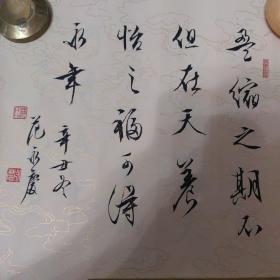 盈缩之期不
但在天养
怡之福可得
永年
辛丑冬
范永慶